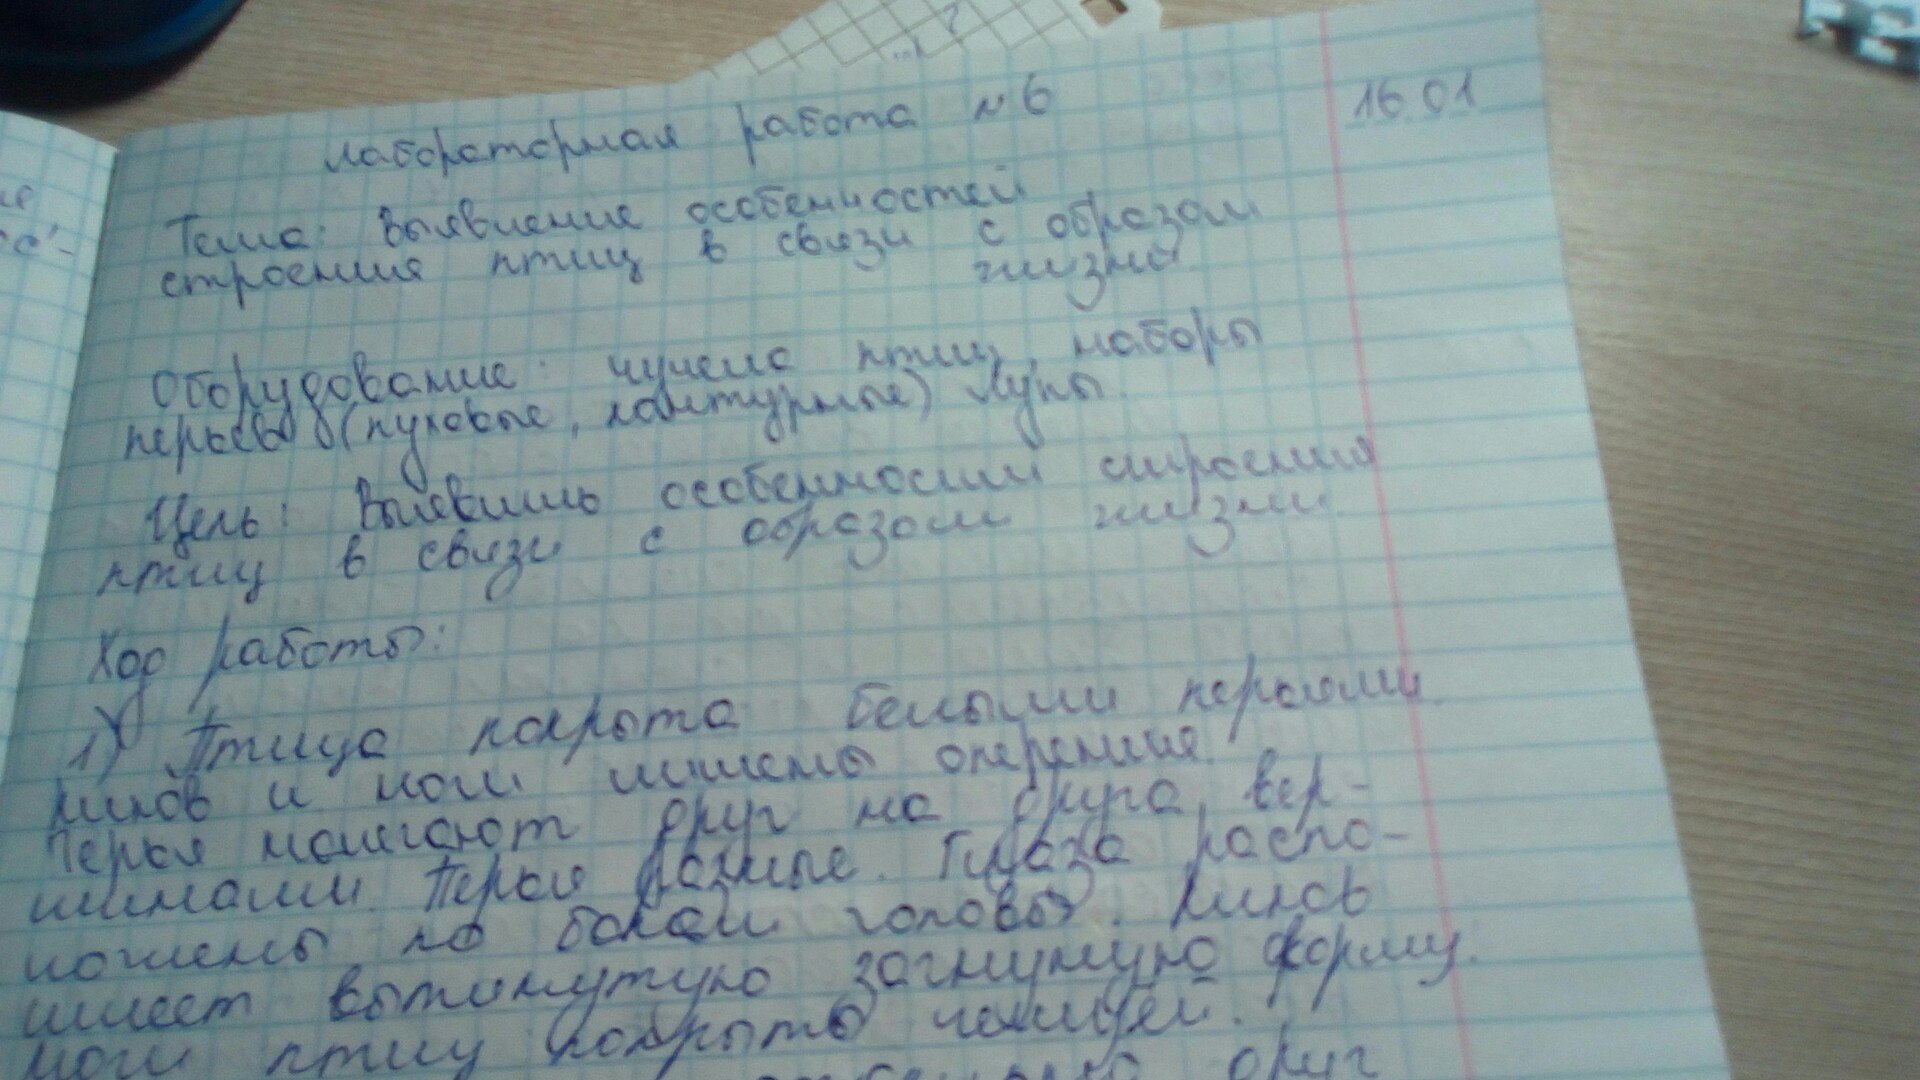 16.01
Лабораторная работа №6
Тема: Выявление особенностей
строения птиц в связи с образом
жизни.
Оборудование: чучела птиц, наборы
перьев (пуховые, контурные) Лупы.
Цель: Выявить особенности строения
птиц в связи с образом жизни.
Ход работы:
1) Птица покрыта белыми перьями.
Клюв и ноги лишены оперения.
Перья налегают друг на друга вер-
шинами. Перья разные. Глаза распо-
ложены по бокам головы. Клюв
имеет вытянутую загнутую форму.
Ноги птиц покрыты чешуёй.
друг